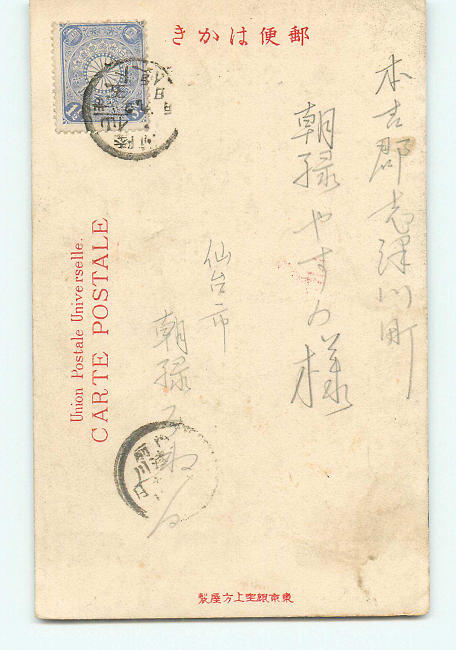 郵便はかき
本吉郡志津川町
朝緑やすの様
仙台市
朝緑
Union Postale Universelle.
CARTE POSTALE
東京銀座上方屋製